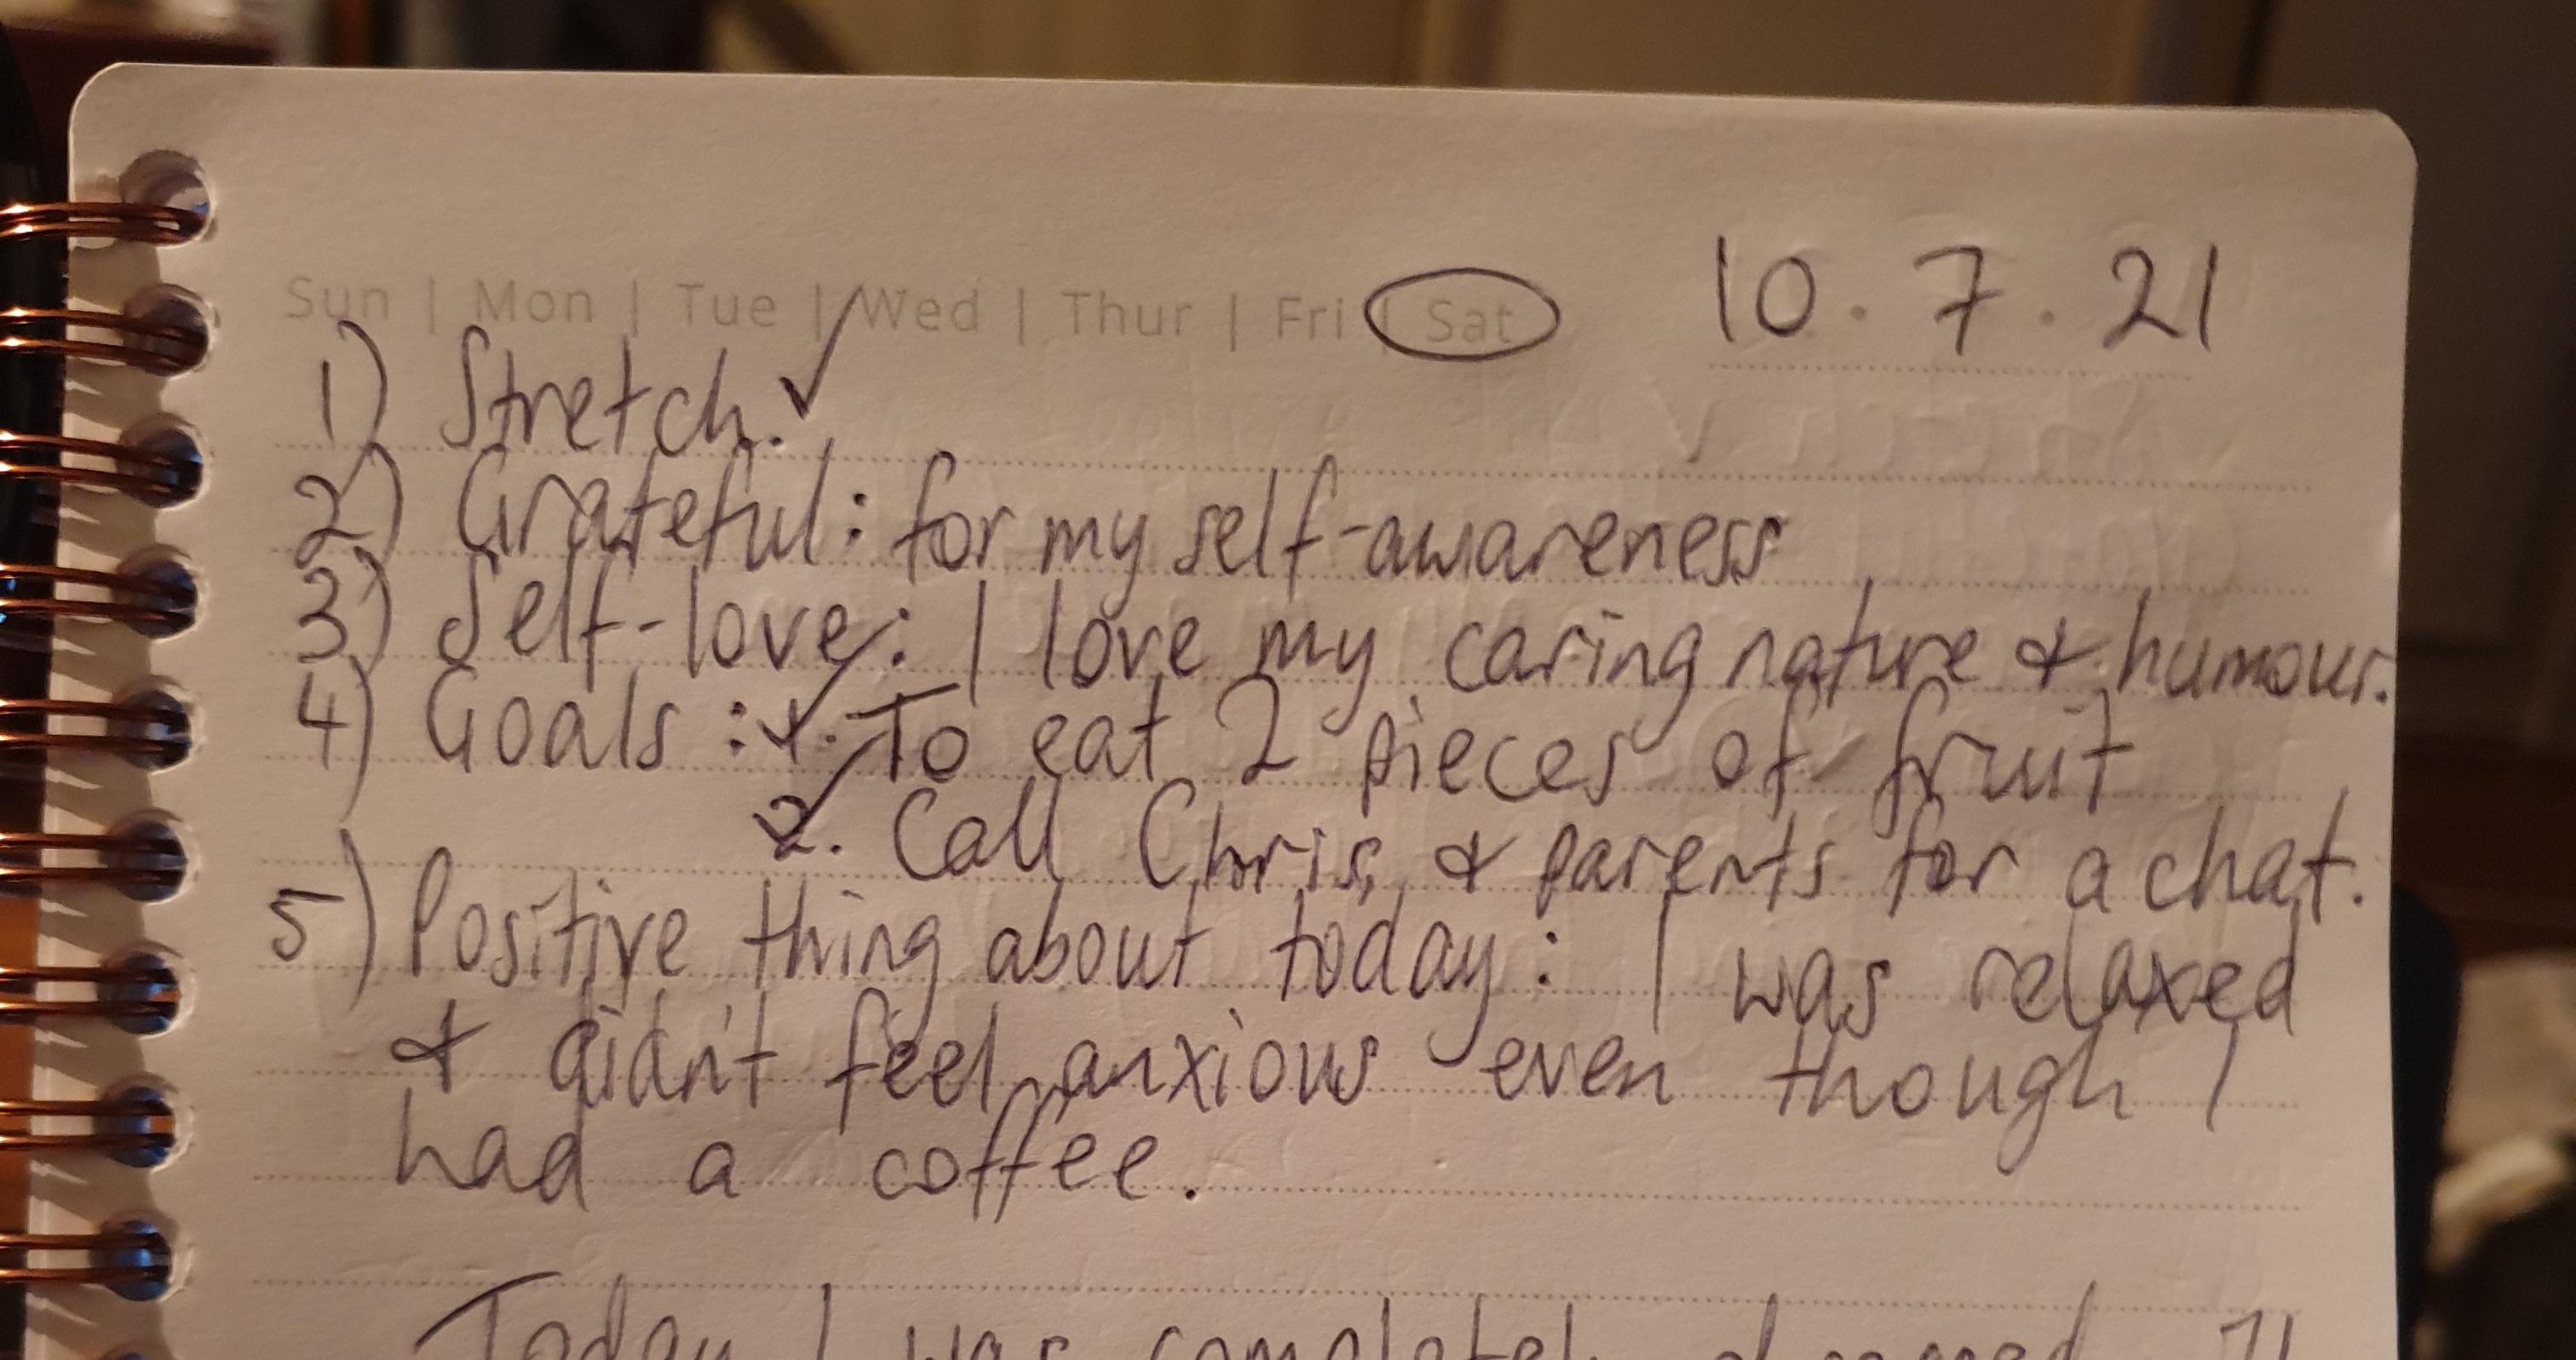 Sun | Mon | Tue | Wed | Thur | Fri | Sat 10 . 7 . 21
1) Stretch. ✓
2) Grateful: for my self-awareness
3) Self-love: I love my caring nature & humour.
4) Goals : ✓ 1. To eat 2 pieces of fruit
✓ 2. Call Chris, & parents for a chat.
5) Positive thing about today: I was relaxed
& didn't feel anxious even though I
had a coffee.
Today I was completely